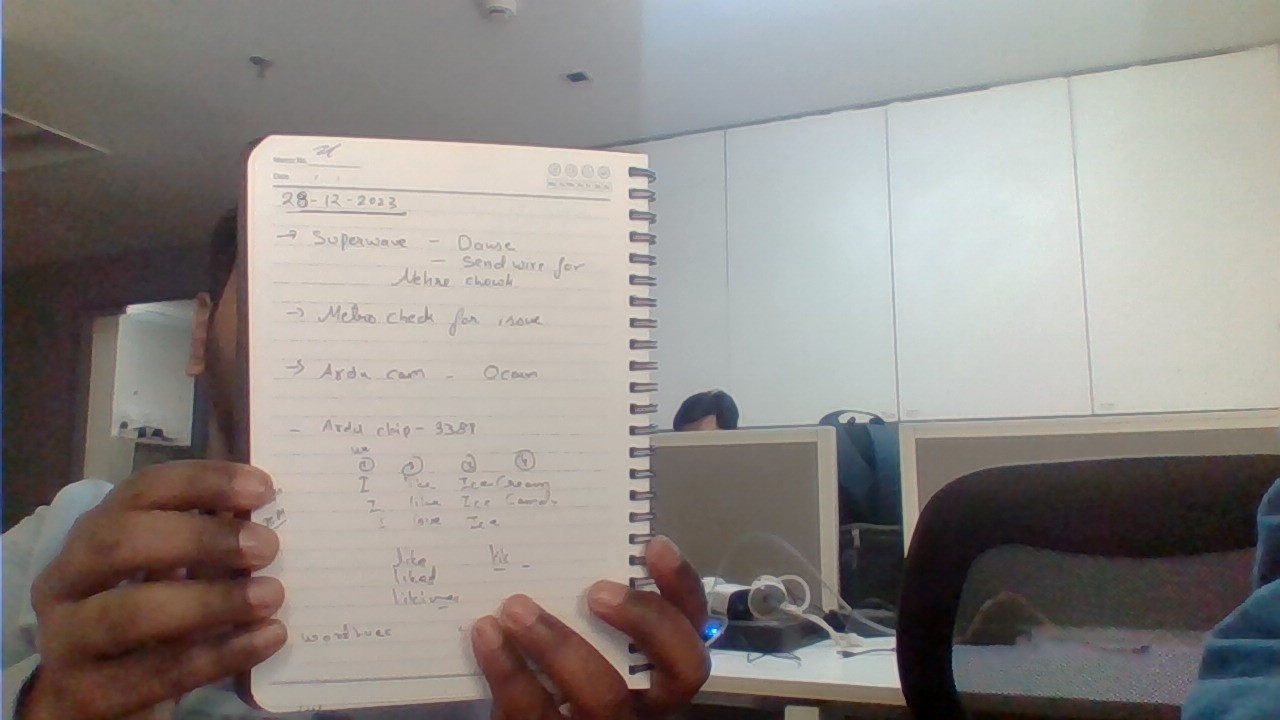 Memo No.
Date / /
28-12-2023
→ Superwave - Dause
- Send wire for
Mehre chowk
→ Metro check for issue
→ Ardu cam - Ocam
- Ardu chip - 3381
① ② ③ ④
I like Ice Cream
I like Ice Candy
I love Ice
like lik -
liked
liking